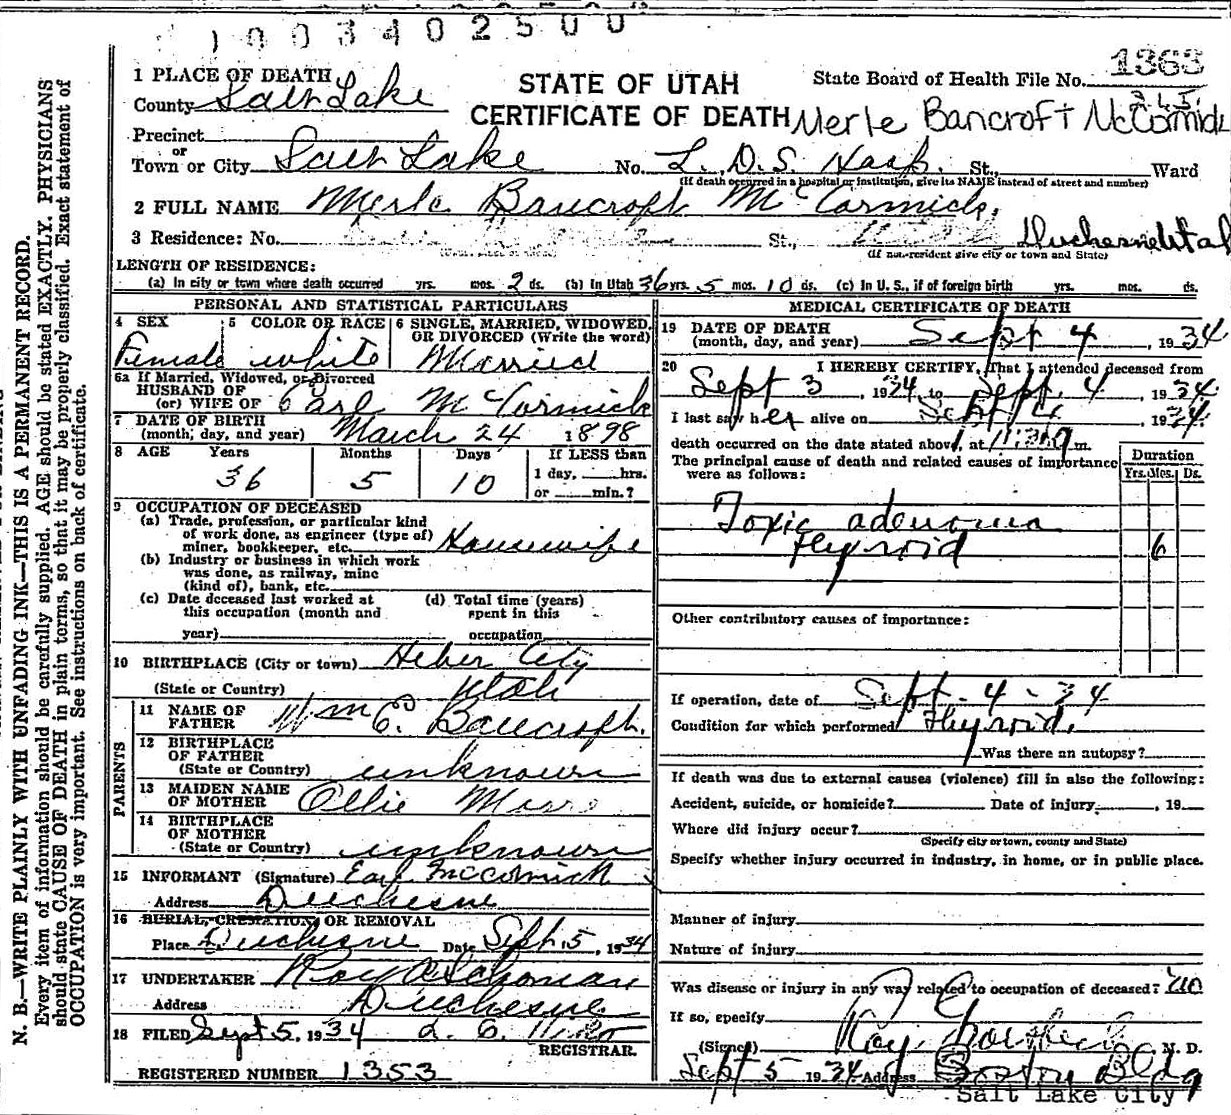 1003402500
1363
3 4 5.
1 PLACE OF DEATH
STATE OF UTAH
State Board of Health File No.
County Salt Lake
CERTIFICATE OF DEATH
Merle Bancroft McCormick
Precinct
or
Town or City Salt Lake No. L. D. S. Hosp. St., Ward
(If death occurred in a hospital or institution, give its NAME instead of street and number)
2 FULL NAME Merle Bancroft McCormick.
3 Residence: No. St., Duchesne Utah
(If non-resident give city or town and State)
LENGTH OF RESIDENCE:
(a) In city or town where death occurred yrs. mos. 2 ds. (b) In Utah 36 yrs. 5 mos. 10 ds. (c) In U. S., if of foreign birth yrs. mos. ds.
PERSONAL AND STATISTICAL PARTICULARS
4 SEX 5 COLOR OR RACE 6 SINGLE, MARRIED, WIDOWED, OR DIVORCED (Write the word)
Female white Married
6a If Married, Widowed, or Divorced
HUSBAND OF
(or) WIFE OF Earl McCormick
7 DATE OF BIRTH
(month, day, and year) March 24 1898
8 AGE Years Months Days If LESS than
1 day, hrs.
36 5 10 or min.?
9 OCCUPATION OF DECEASED
(a) Trade, profession, or particular kind
of work done, as engineer (type of)
miner, bookkeeper, etc. Housewife
(b) Industry or business in which work
was done, as railway, mine
(kind of), bank, etc.
(c) Date deceased last worked at (d) Total time (years)
this occupation (month and spent in this
year) occupation
10 BIRTHPLACE (City or town) Heber City
(State or Country) Utah
PARENTS
11 NAME OF
FATHER Wm E. Bancroft.
12 BIRTHPLACE
OF FATHER
(State or Country) unknown
13 MAIDEN NAME
OF MOTHER Ollie
14 BIRTHPLACE
OF MOTHER
(State or Country) unknown
15 INFORMANT (Signature) Earl McCormick
Address Duchesne
16 BURIAL, CREMATION, OR REMOVAL
Place Duchesne Date Sept. 5, 1934
17 UNDERTAKER Roy A Schonian
Address Duchesne
18 FILED Sept 5, 1934
REGISTRAR.
REGISTERED NUMBER 1353
MEDICAL CERTIFICATE OF DEATH
19 DATE OF DEATH
(month, day, and year) Sept 4, 1934
20 I HEREBY CERTIFY, That I attended deceased from
Sept 3, 1934, to Sept. 4, 1934.
I last saw her alive on Sept 4, 1934.
death occurred on the date stated above, at m.
The principal cause of death and related causes of importance
were as follows:
Duration
Yrs. Mos. Ds.
Toxic adenoma
thyroid 6
Other contributory causes of importance:
If operation, date of Sept-4-34
Condition for which performed Thyroid.
Was there an autopsy?
If death was due to external causes (violence) fill in also the following:
Accident, suicide, or homicide? Date of injury , 19
Where did injury occur?
(Specify city or town, county and State)
Specify whether injury occurred in industry, in home, or in public place.
Manner of injury
Nature of injury
Was disease or injury in any way related to occupation of deceased? no
If so, specify
(Signed) Roy M. D.
Sept 5 1934. Address Boston Bldg
Salt Lake City
N. B.—WRITE PLAINLY WITH UNFADING INK—THIS IS A PERMANENT RECORD.
Every item of information should be carefully supplied. AGE should be stated EXACTLY. PHYSICIANS
should state CAUSE OF DEATH in plain terms, so that it may be properly classified. Exact statement of
OCCUPATION is very important. See instructions on back of certificate.